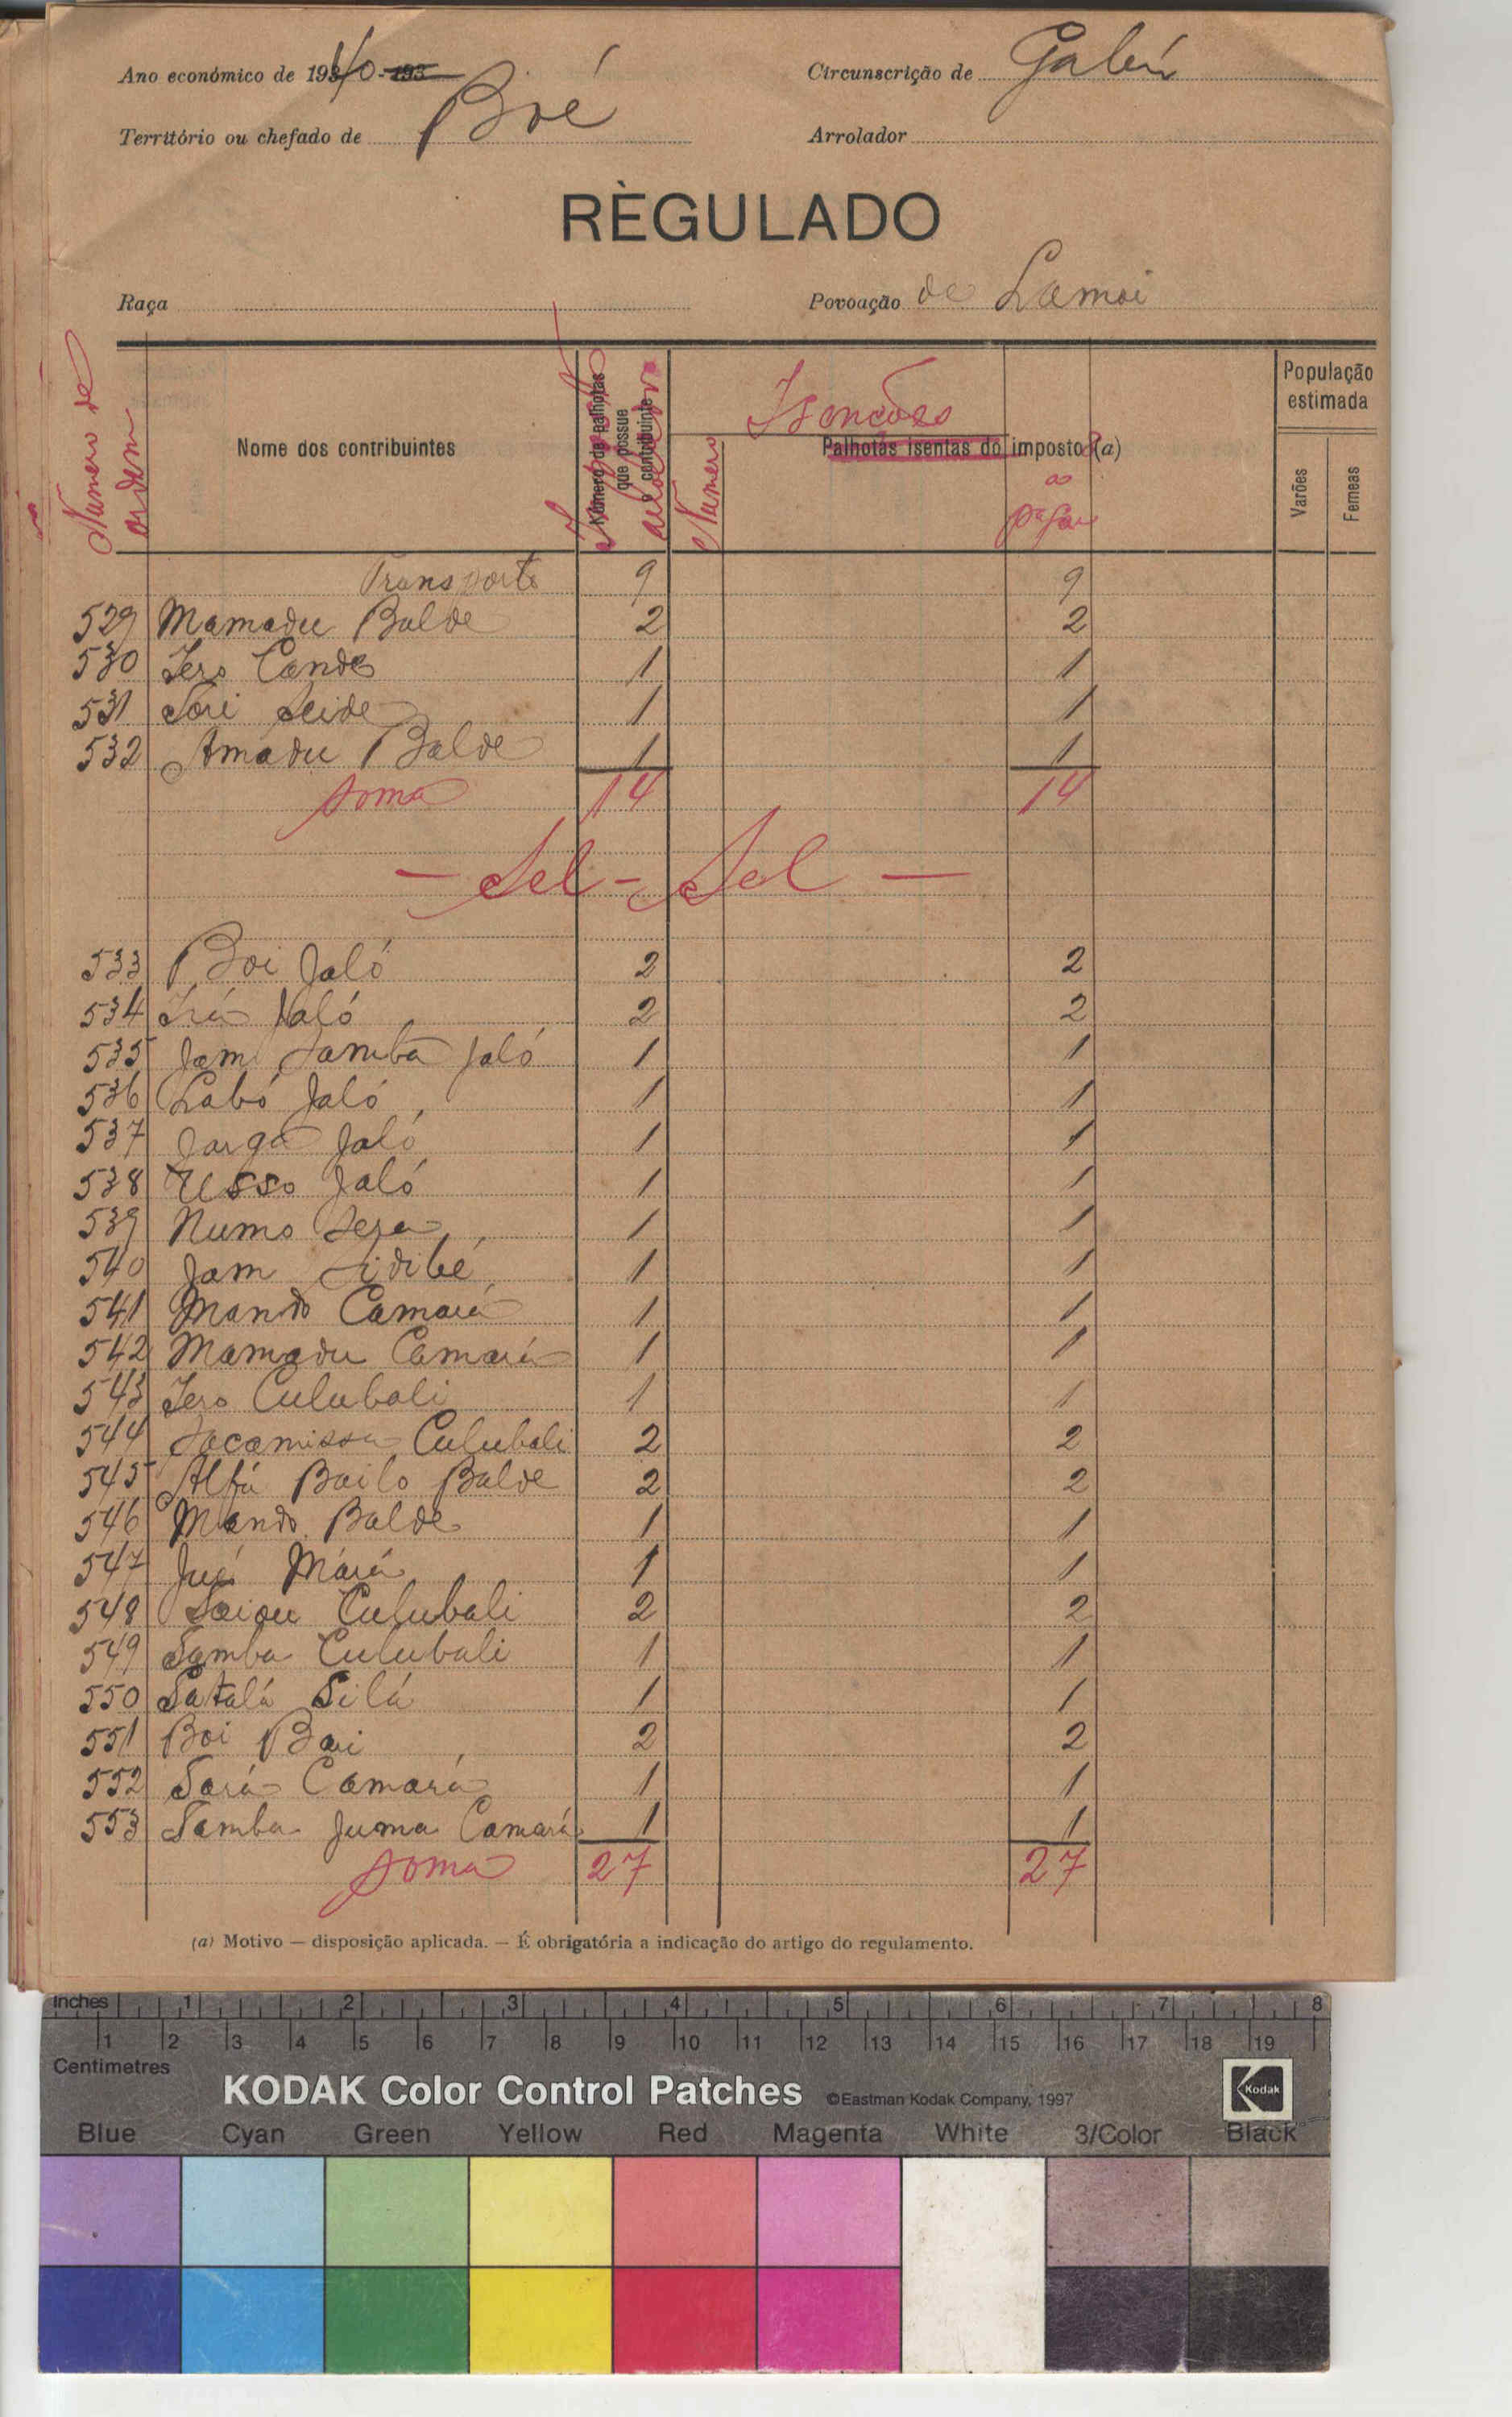 Ano económico de 1940-195
Circunscrição de Gabú
Território ou chefado de Boé
Arrolador
RÈGULADO
Raça
Povoação de Lamoi
Numero de ordem
Nome dos contribuintes
Número de palhotas que possue o contribuinte
Numero
Isenções
Palhotas isentas do imposto (a)
a pagar
População estimada
Varões
Femeas
Transporte 9 9
529 Mamadu Balde 2 2
530 Iero Cande 1 1
531 Sori Seide 1 1
532 Amadu Balde 1 1
soma 14 14
— Sel - Sel —
533 Boi Jaló 2 2
534 Jaló 2 2
535 Jam Samba Jaló 1 1
536 Labó Jaló 1 1
537 Jarga Jaló 1 1
538 Usso Jaló 1 1
539 Numo Sera 1 1
540 Jam Sidibé 1 1
541 Mando Camará 1 1
542 Mamadu Camará 1 1
543 Iero Culubali 1 1
544 Culubali 2 2
545 Alfá Bailo Balde 2 2
546 Mando Balde 1 1
547 Mará 1 1
548 Saiou Culubali 2 2
549 Samba Culubali 1 1
550 Satalá Silá 1 1
551 Boi Bai 2 2
552 Sará Camará 1 1
553 Samba Juma Camará 1 1
soma 27 27
(a) Motivo — disposição aplicada. — É obrigatória a indicação do artigo do regulamento.
Inches 1 2 3 4 5 6 7 8
1 2 3 4 5 6 7 8 9 10 11 12 13 14 15 16 17 18 19
Centimetres
KODAK Color Control Patches ©Eastman Kodak Company, 1997 Kodak
Blue Cyan Green Yellow Red Magenta White 3/Color Black